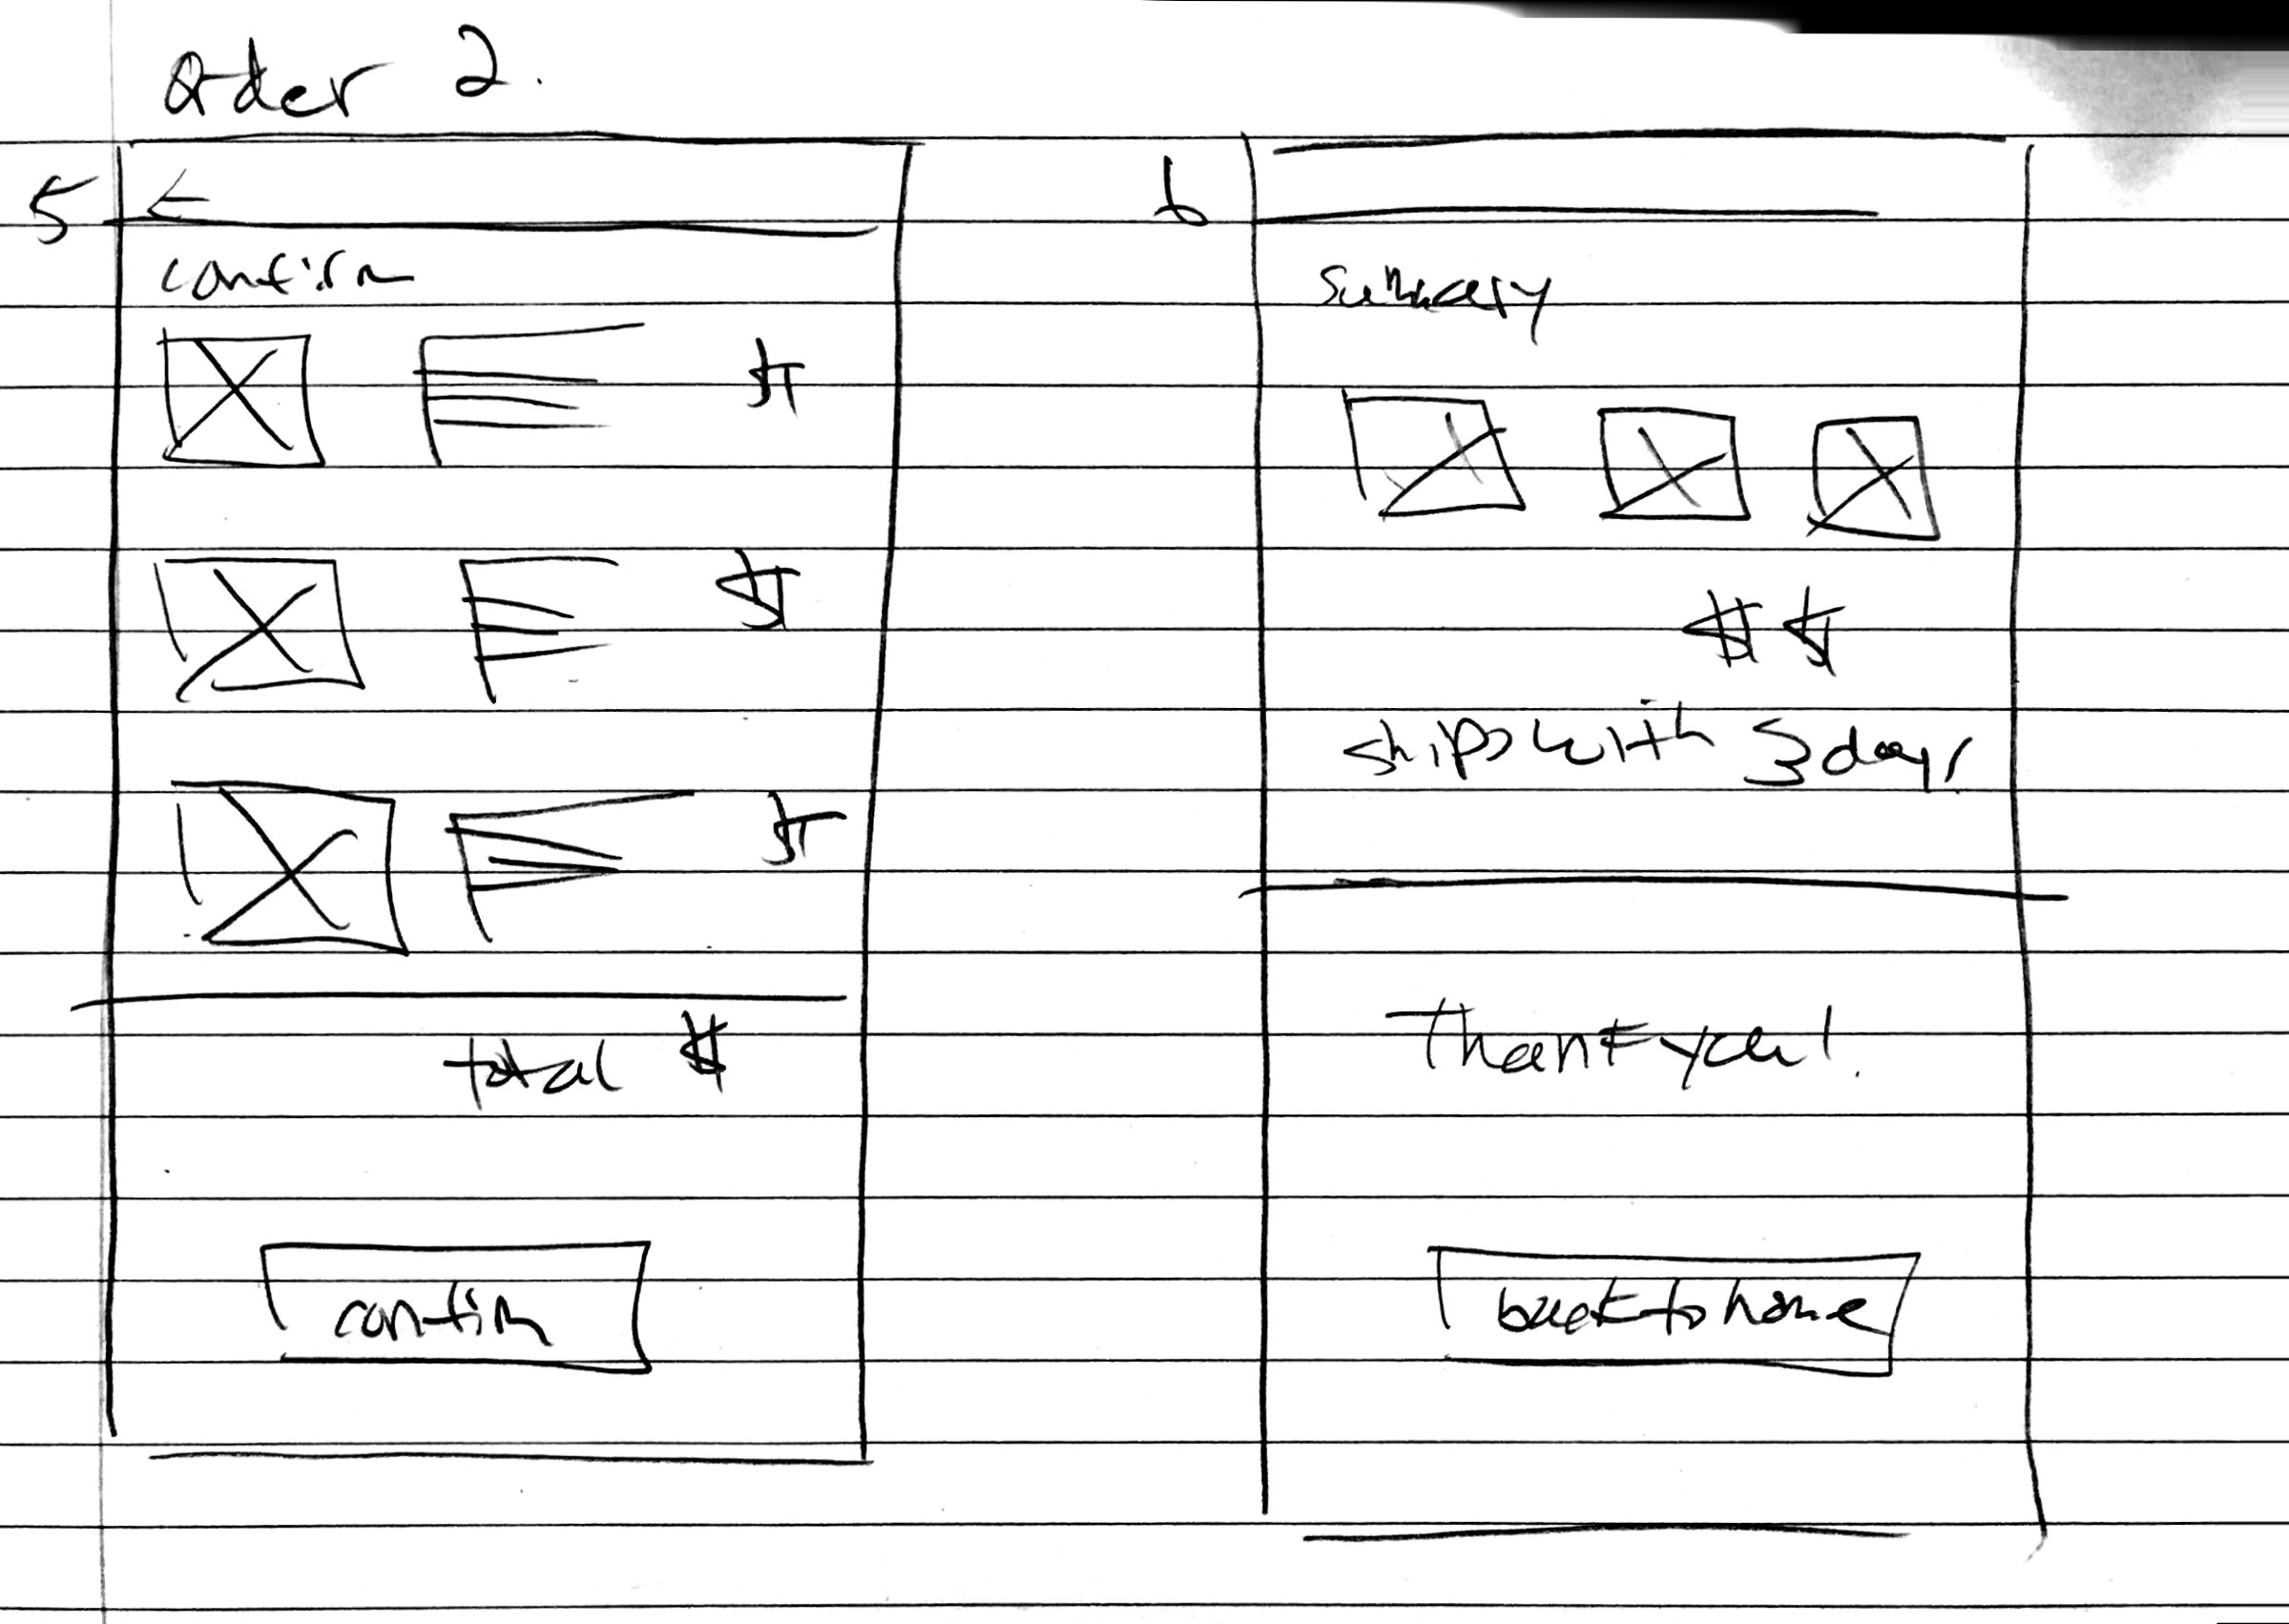 Order 2.
5
←
confirm
$
$
$
total $
confirm
6
Summary
$ $
ships with 3 days
Thank you!
back to home